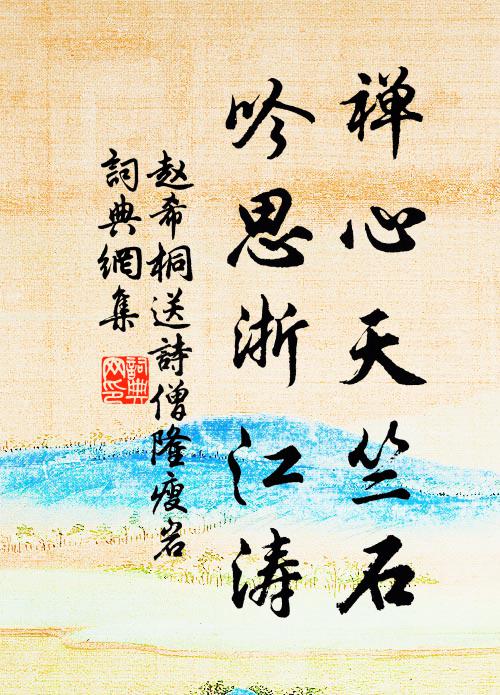 禅心天竺石
吟思浙江涛
赵希桐送詩僧隆瘦岩
詞典網集
詞典网印